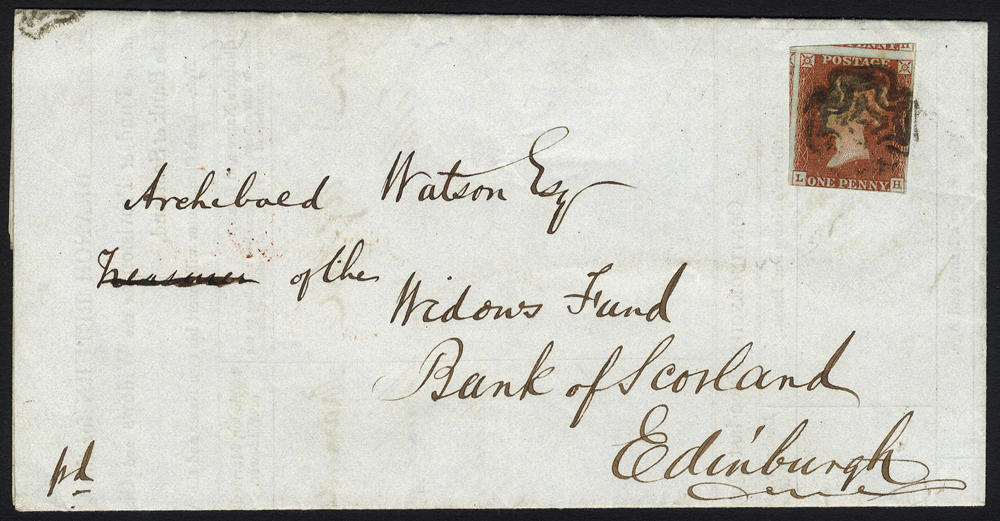 ENNY H
POSTAGE
L ONE PENNY H
Archibald Watson Esq
Treasurer of the
Widows Fund
Bank of Scotland
Edinburgh
pd